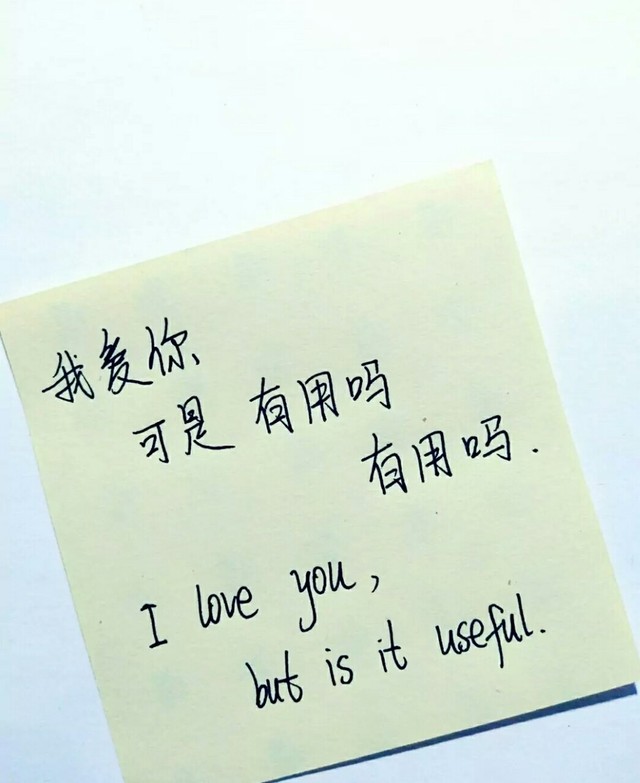 我爱你、
可是 有用吗
有用吗.
I love you,
but is it useful.